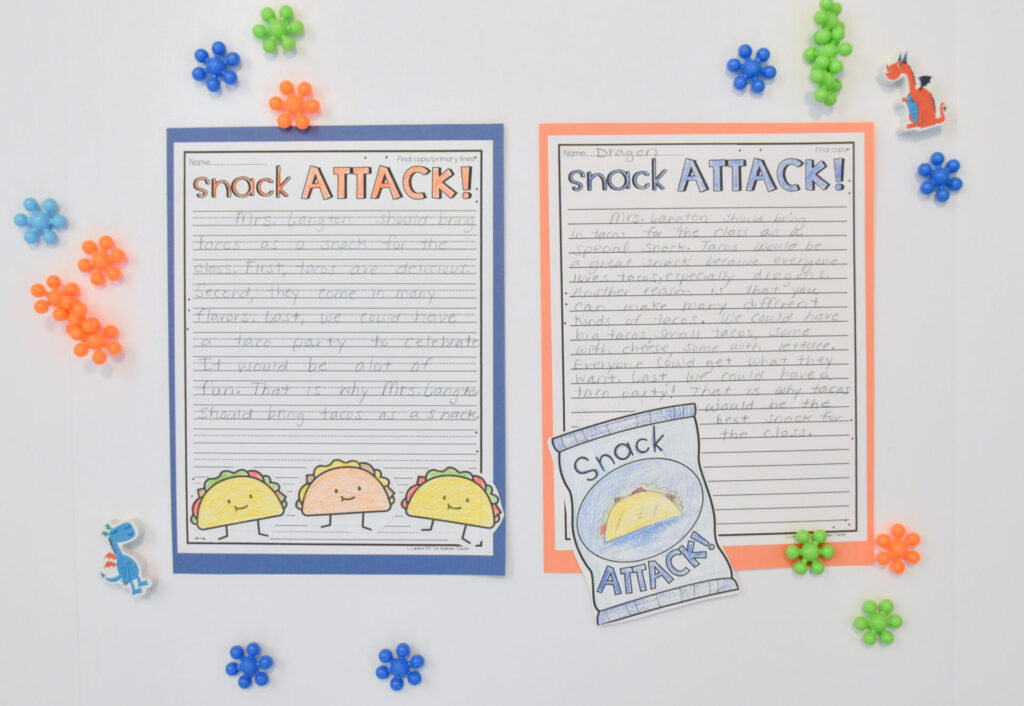 Name
Final copy/primary lines
snack ATTACK!
Mrs. Langton should bring
tacos as a snack for the
class. First, tacos are delicious.
Second, they come in many
flavors. Last, we could have
a taco party to celebrate
It would be alot of
fun. That is why Mrs. Langton
should bring tacos as a snack.
Name Dragon
Final copy
snack ATTACK!
Mrs. Langton should bring
in tacos for the class as a
special snack. Tacos would be
a great snack because everyone
loves tacos, especially dragons.
Another reason is that you
can make many different
kinds of tacos. We could have
big tacos, small tacos, some
with cheese, some with lettuce.
Everyone could get what they
want. Last, we could have a
taco party! That is why tacos
would be the
best snack for
the class.
Snack
ATTACK!